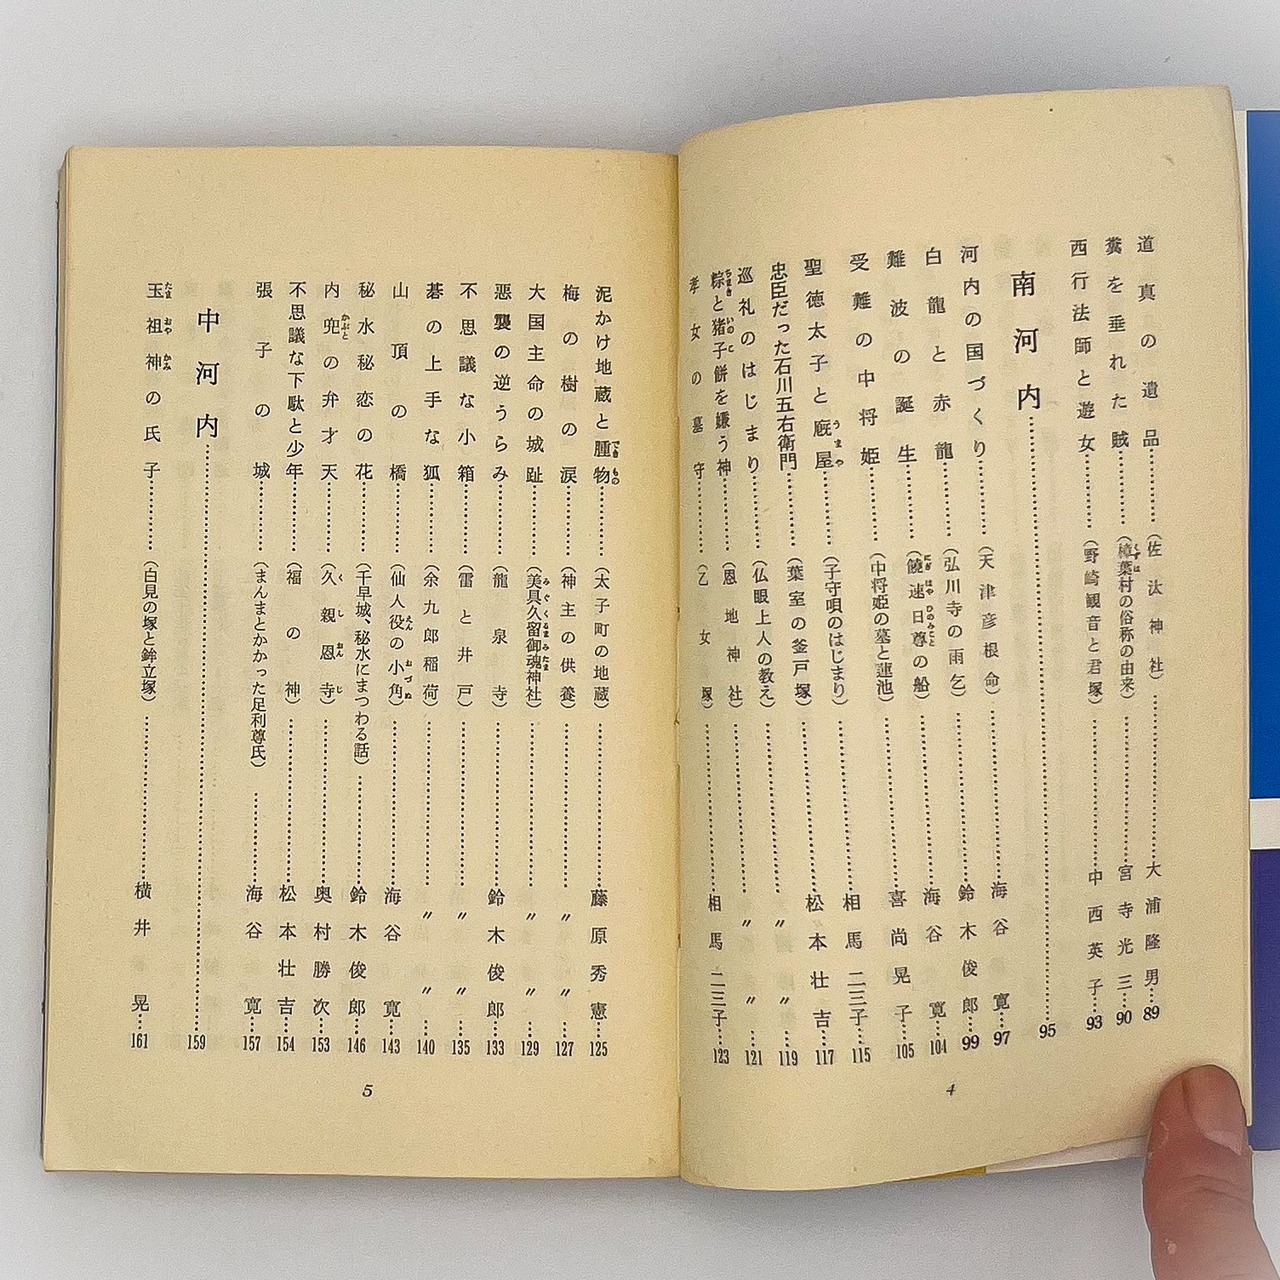 道真の遺品……(佐汰神社)……大浦隆男…89
糞を垂れた賊……(樟葉村の俗称の由来)……宮寺光三…90
西行法師と遊女……(野崎観音と君塚)……中西英子…93
南河内……95
河内の国づくり……(天津彦根命)……海谷寛…97
白龍と赤龍……(弘川寺の雨乞)……鈴木俊郎…99
難波の誕生……(饒速日尊の船)……海谷寛…104
受難の中将姫……(中将姫の墓と蓮池)……喜尚晃子…105
聖徳太子と厩屋……(子守唄のはじまり)……相馬二三子…115
忠臣だった石川五右衛門……(葉室の釜戸塚)……松本壮吉…117
巡礼のはじまり……(仏眼上人の教え)……〃〃…119
粽と猪子餅を嫌う神……(恩地神社)……〃〃…121
孝女の墓守……(乙女塚)……相馬二三子…123
4
泥かけ地蔵と腫物……(太子町の地蔵)……藤原秀憲…125
梅の樹の涙……(神主の供養)……〃〃…127
大国主命の城趾……(美具久留御魂神社)……〃〃…129
悪襲の逆うらみ……(龍泉寺)……鈴木俊郎…133
不思議な小箱……(雷と井戸)……〃〃…135
碁の上手な狐……(余九郎稲荷)……〃〃…140
山頂の橋……(仙人役の小角)……海谷寛…143
秘水秘恋の花……(千早城、秘水にまつわる話)……鈴木俊郎…146
内兜の弁才天……(久親恩寺)……奥村勝次…153
不思議な下駄と少年……(福の神)……松本壮吉…154
張子の城……(まんまとかかった足利尊氏)……海谷寛…157
中河内……159
玉祖神の氏子……(白見の塚と鉾立塚)……横井晃…161
5